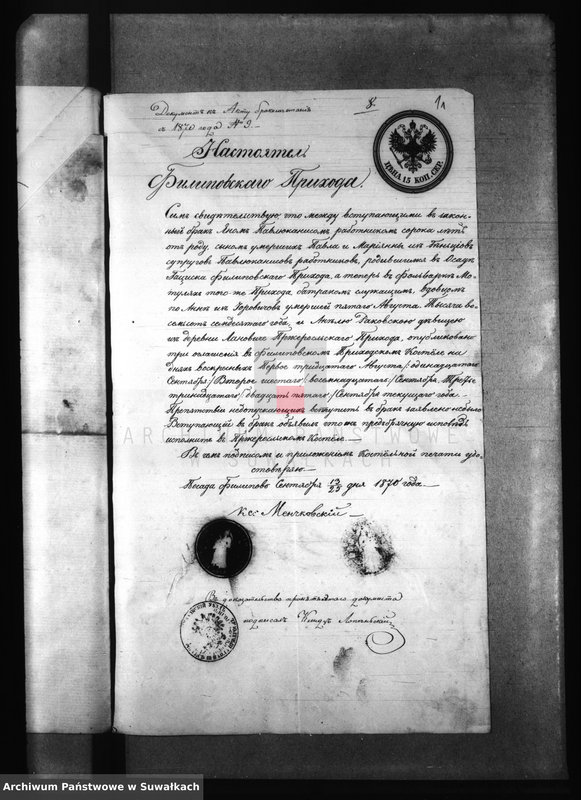 Документъ къ Акту бракосочетанія
съ 1870 года № 9.
8.
1л
ЦѢНА 15 КОП. СЕР.
Настоятель
Филиповскаго Прихода.
Симъ свидѣтельствую что между вступающими въ закон-
ный бракъ Яномъ Павлюканисомъ работникомъ сорока лѣтъ
отъ роду, сыномъ умершихъ Павла и Маріянны изъ
супруговъ Павлюканисовъ работниковъ, родившимся въ Осадѣ
Филиповскаго Прихода, а теперь въ фольваркѣ Мо-
туляхъ того же Прихода батракомъ служащимъ, вдовцомъ
по Аннѣ изъ умершей пятаго Августа тысяча во-
семьсотъ семдесятаго года, и Анѣлею Раковскою дѣвицею
изъ деревни Прихода, опубликованы
три оглашенія въ Филиповскомъ Приходскомъ Костелѣ на
дняхъ воскресныхъ Первое тридцатаго Августа /: одинадцатаго
Сентября/ Второе шестаго /: восемнадцатаго/ Сентября Третье
тринадцатаго /: двадцать пятаго/ Сентября текущаго года.
Препятствій недопускающихъ вступить въ бракъ заявлено небыло
Вступающій въ бракъ объявилъ что предбрачную исповѣдь
исполнитъ въ Костелѣ.
Въ чемъ подписомъ и приложеніемъ Костельной печати удо-
стовѣряю.
Посада Филипово Сентября 13/25 дня 1870 года.
Кс: Менчковскій
ARCHIWUM PAŃSTWOWE
W SUWAŁKACH
Въ доказательство документа
подписалъ Ксендзъ
Archiwum Państwowe w Suwałkach